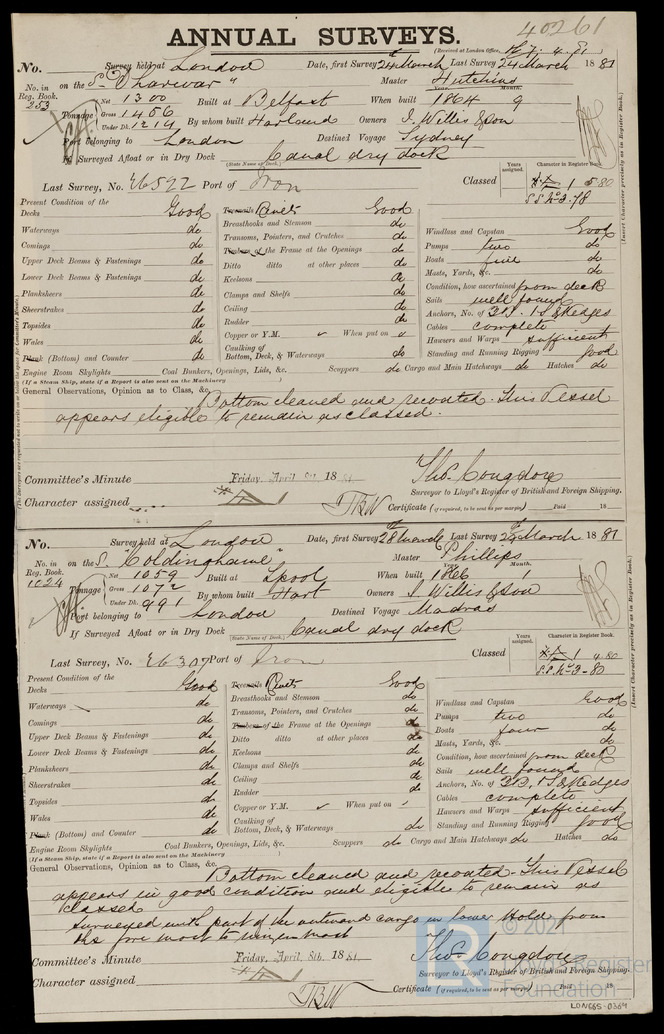 40261
ANNUAL SURVEYS.
(Received at London Office,
No. Survey held at London Date, first Survey 24th March Last Survey 24 March 1881
No. in Reg. Book. on the S. "Dharwar" Master Hutchins
253 Net 1300 Built at Belfast When built Year. 1864 Month. 9
Tonnage Gross 1456 By whom built Harland Owners J. Willis & Son
Under Dk. 1214
Port belonging to London Destined Voyage Sydney
If Surveyed Afloat or in Dry Dock (State Name of Dock.) Canal dry dock
Years assigned. Character in Register Book.
Last Survey, No. 46592 Port of Iron Classed 1 5.80
S.S. No. 3-78
Present Condition of the
Decks Good Treenails Rivets Good
Waterways do Breasthooks and Stemson do Windlass and Capstan Good
Comings do Transoms, Pointers, and Crutches do Pumps two do
Upper Deck Beams & Fastenings do Timbers of the Frame at the Openings do Boats five do
Lower Deck Beams & Fastenings do Ditto ditto at other places do Masts, Yards, &c. do
Planksheers do Keelsons do Condition, how ascertained from deck
Sheerstrakes do Clamps and Shelfs do Sails well found
Topsides do Ceiling do Anchors, No. of 3B. 1S & Kedges
Wales do Rudder do Cables complete
Plank (Bottom) and Counter do Copper or Y.M. When put on Hawsers and Warps sufficient
Caulking of Bottom, Deck, & Waterways do Standing and Running Rigging good
Engine Room Skylights Coal Bunkers, Openings, Lids, &c. Scuppers do Cargo and Main Hatchways do Hatches do
(If a Steam Ship, state if a Report is also sent on the Machinery
General Observations, Opinion as to Class, &c. Bottom cleaned and recoated. This Vessel
appears eligible to remain as classed.
Committee's Minute Friday, April 8th 1881 Thos. Congdon
Surveyor to Lloyd's Register of British and Foreign Shipping.
Character assigned TBW Certificate (if required, to be sent as per margin) Paid 18
No. Survey held at London Date, first Survey 28th March Last Survey 29th March 1881
No. in Reg. Book. on the S. "Coldinghame" Master Phillips
1024 Net 1059 Built at Lpool When built Year. 1866 Month. 1
Tonnage Gross 1072 By whom built Hart Owners J. Willis & Son
Under Dk. 991
Port belonging to London Destined Voyage Madras
If Surveyed Afloat or in Dry Dock (State Name of Dock.) Canal dry dock
Years assigned. Character in Register Book.
Last Survey, No. 46307 Port of Iron Classed 1 4.80
S.S. No. 3-80
Present Condition of the
Decks Good Treenails Rivets Good
Waterways do Breasthooks and Stemson do Windlass and Capstan Good
Comings do Transoms, Pointers, and Crutches do Pumps two do
Upper Deck Beams & Fastenings do Timbers of the Frame at the Openings do Boats four do
Lower Deck Beams & Fastenings do Ditto ditto at other places do Masts, Yards, &c. do
Planksheers do Keelsons do Condition, how ascertained from deck
Sheerstrakes do Clamps and Shelfs do Sails well found
Topsides do Ceiling do Anchors, No. of 3B, 1S & Kedges
Wales do Rudder do Cables complete
Plank (Bottom) and Counter do Copper or Y.M. When put on Hawsers and Warps sufficient
Caulking of Bottom, Deck, & Waterways do Standing and Running Rigging good
Engine Room Skylights Coal Bunkers, Openings, Lids, &c. Scuppers do Cargo and Main Hatchways do Hatches do
(If a Steam Ship, state if a Report is also sent on the Machinery
General Observations, Opinion as to Class, &c. Bottom cleaned and recoated. This Vessel
appears in good condition and eligible to remain as
classed
Surveyed with part of the outward cargo in lower Hold from
the fore mast to mizen mast
Committee's Minute Friday, April, 8th, 1881. Thos. Congdon
Surveyor to Lloyd's Register of British and Foreign Shipping.
Character assigned TBW Certificate (if required, to be sent as per margin) Paid 18
(Insert Character precisely as in Register Book.)
(Insert Character precisely as in Register Book.)
© 2021
Lloyd's Register
Foundation
LON665-0364